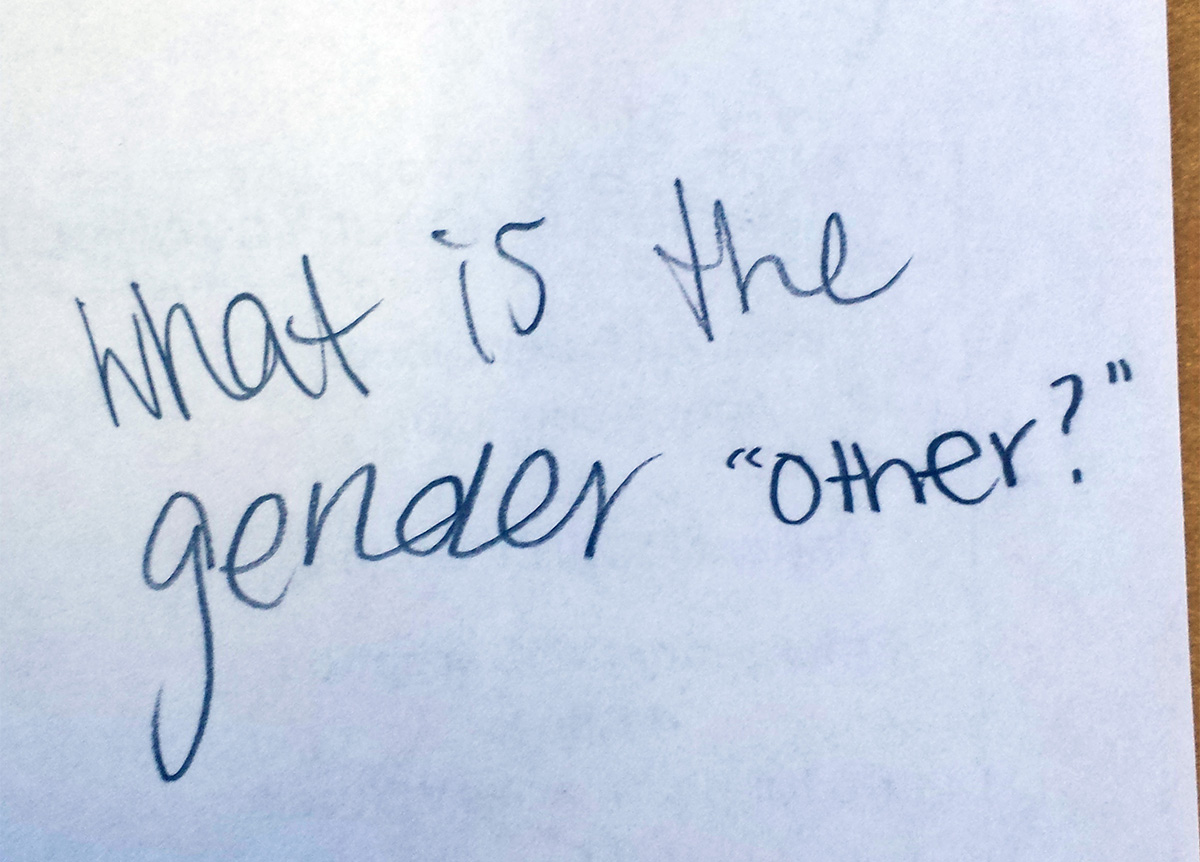 what is the
gender "other?"